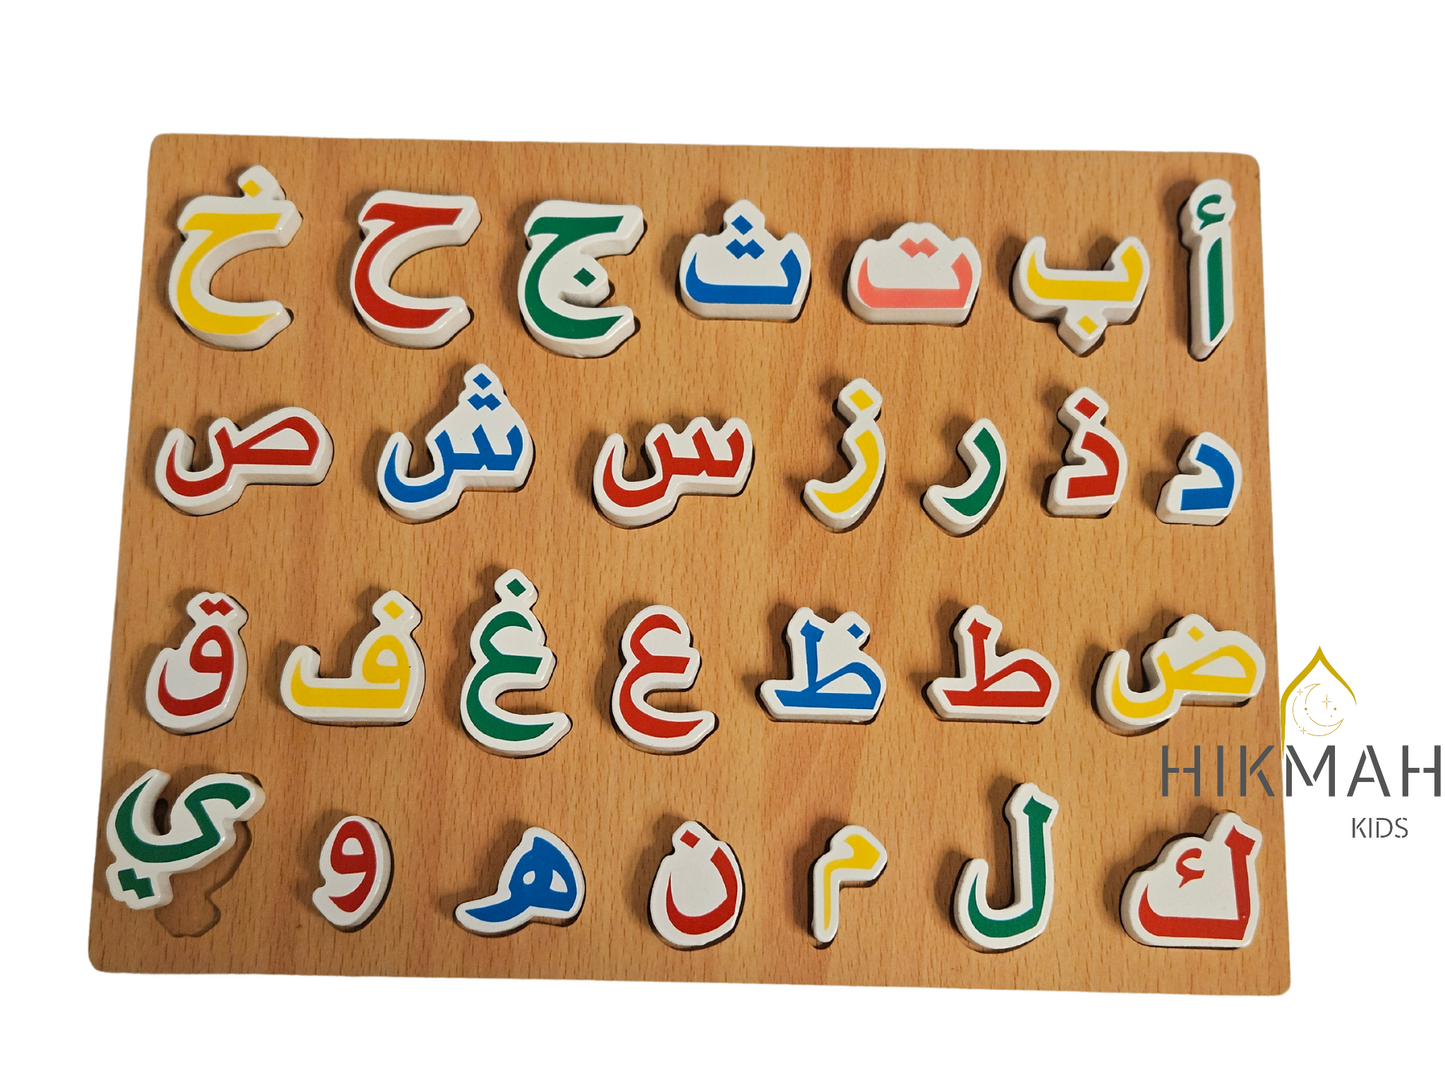 أ ب ت ث ج ح خ
د ذ ر ز س ش ص
ض ط ظ ع غ ف ق
ك ل م ن هـ و ي
HIKMAH
KIDS